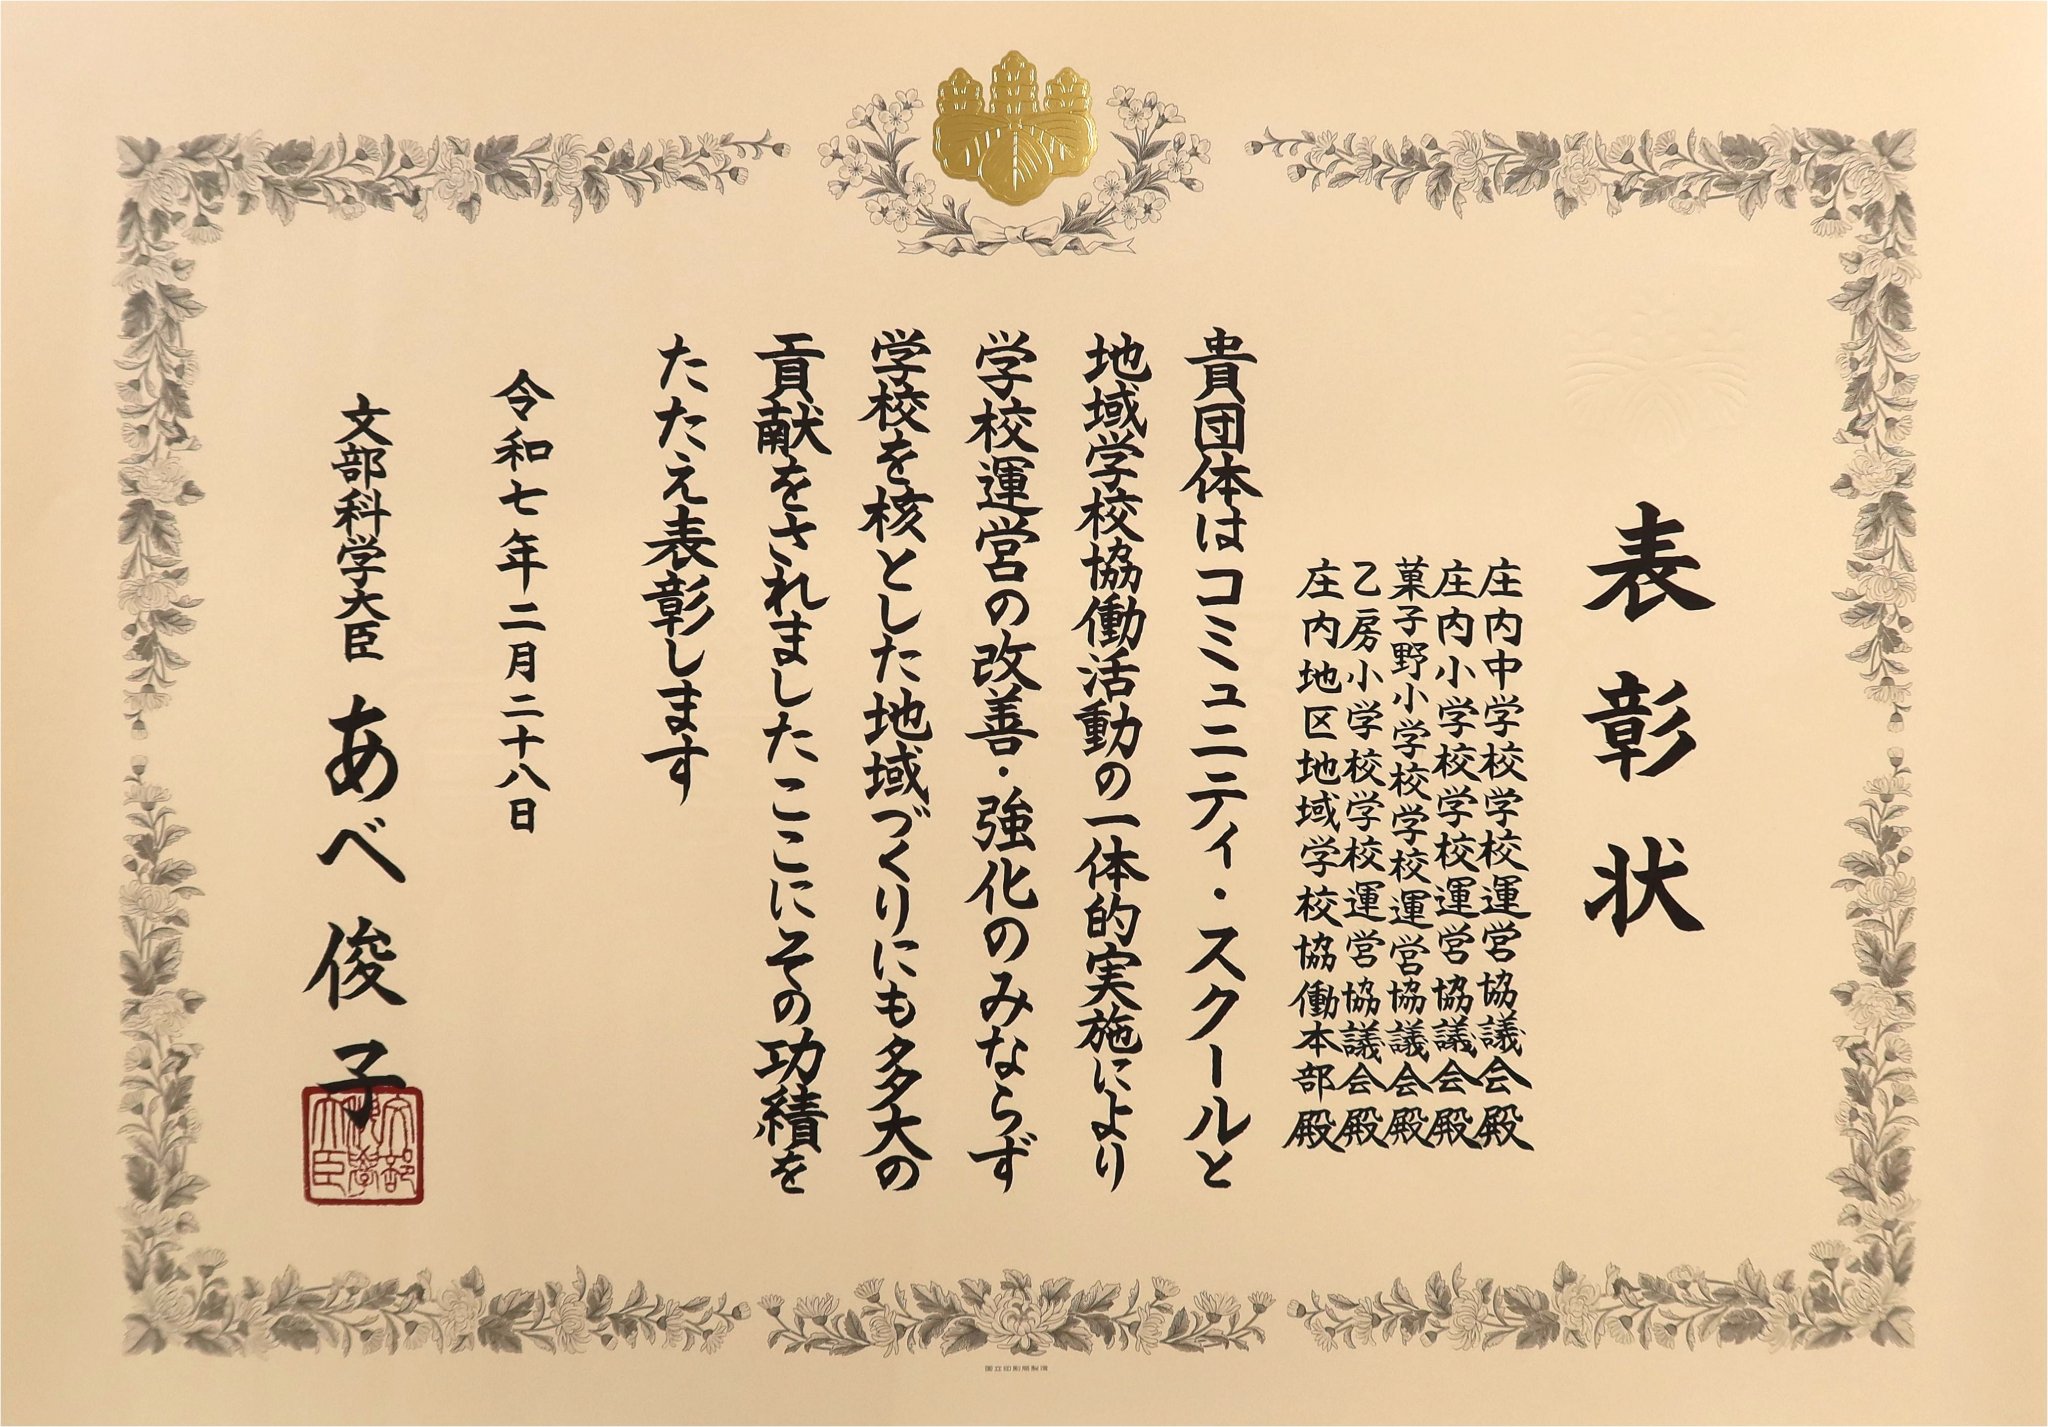 表彰状
庄内中学校学校運営協議会殿
庄内小学校学校運営協議会殿
菓子野小学校学校運営協議会殿
乙房小学校学校運営協議会殿
庄内地区地域学校協働本部殿
貴団体はコミュニティ・スクールと
地域学校協働活動の一体的実施により
学校運営の改善・強化のみならず
学校を核とした地域づくりにも多大の
貢献をされましたここにその功績を
たたえ表彰します
令和七年二月二十八日
文部科学大臣 あべ俊子
文部科学大臣
国立印刷局製造